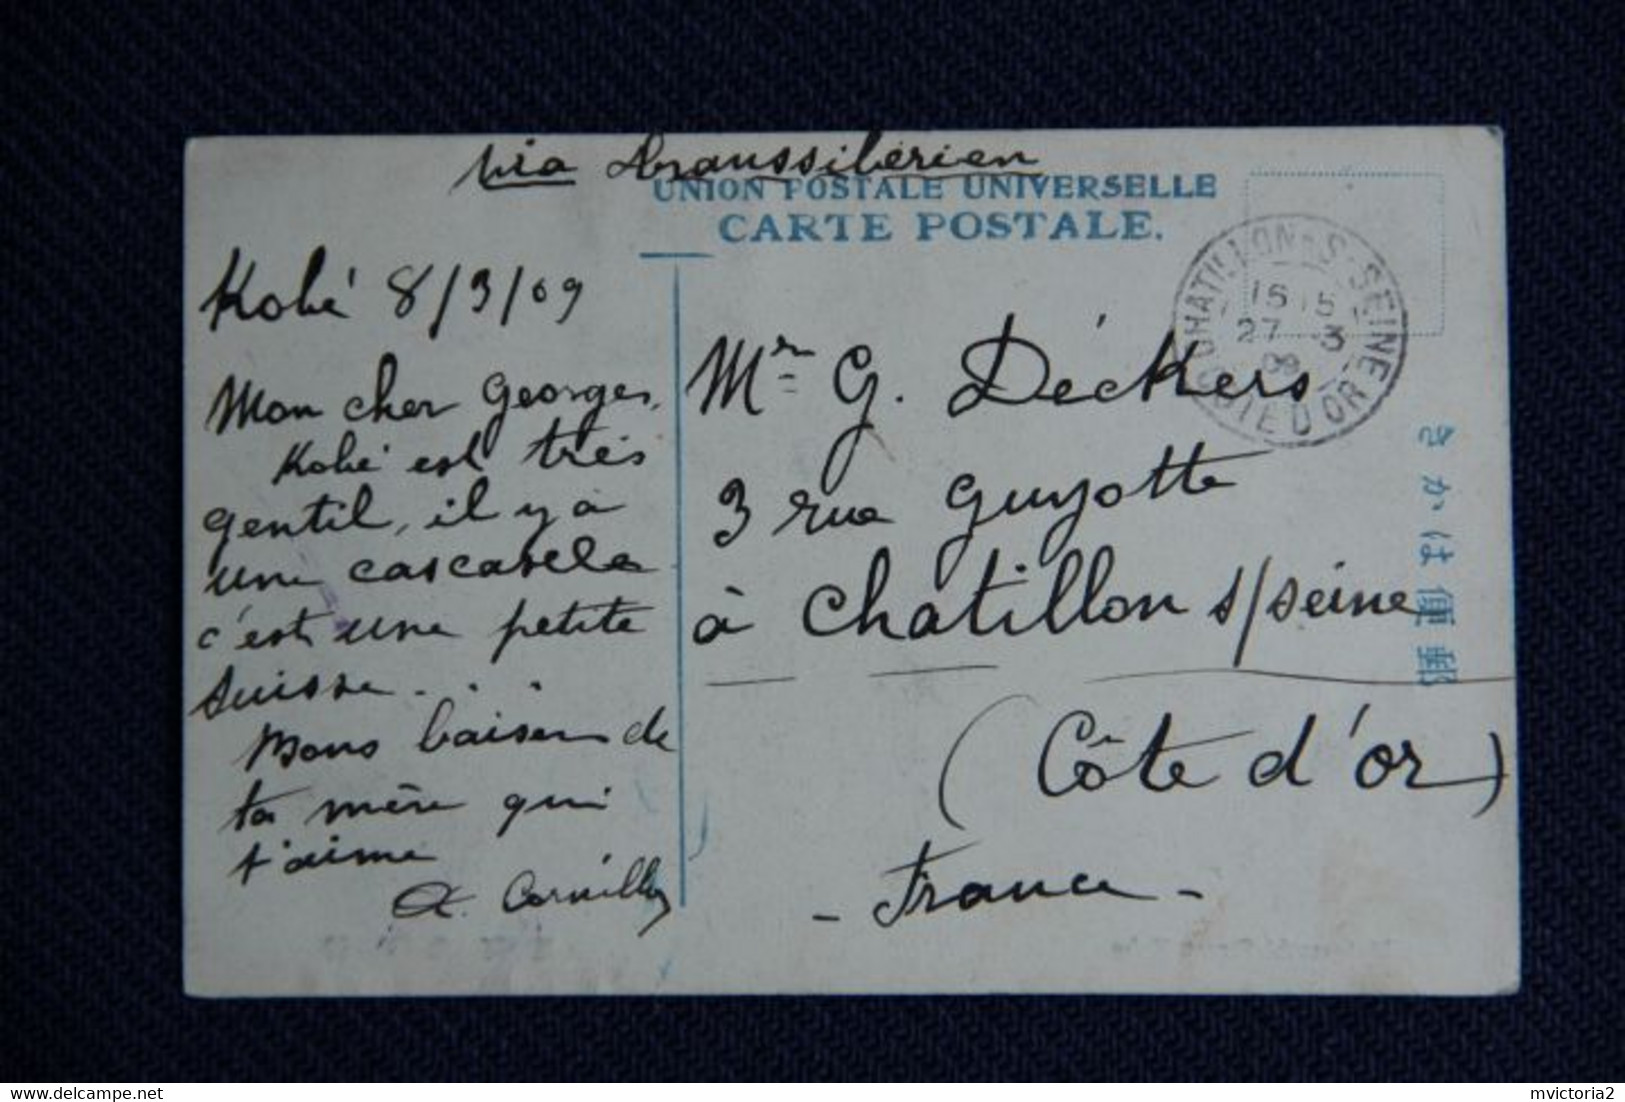 via transsibérien
UNION POSTALE UNIVERSELLE
CARTE POSTALE.
Kobé 8/3/09
Mon cher Georges,
Kobé est très
gentil, il y a
une cascade
c'est une petite
suisse...
Bons baisers de
ta mère qui
t'aime
Mr G. Déckers
3 rue Guyotte
à Chatillon s/seine
(Côte d'or)
- France -
CHATILLON-S-SEINE
15 15
27 -3
09
COTE D'OR
きかは便郵
mvictoria2